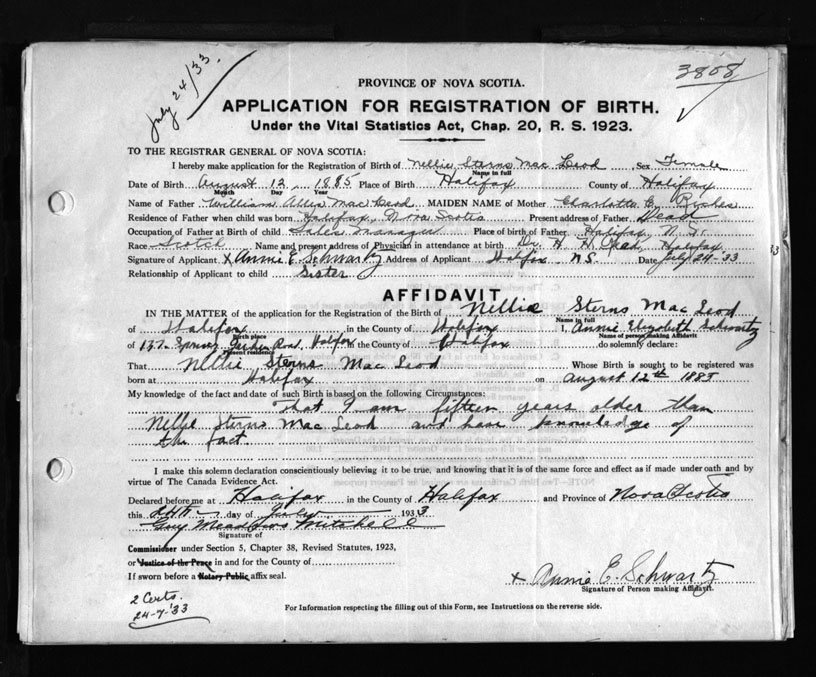 July 24/33
3808
PROVINCE OF NOVA SCOTIA.
APPLICATION FOR REGISTRATION OF BIRTH.
Under the Vital Statistics Act, Chap. 20, R. S. 1923.
TO THE REGISTRAR GENERAL OF NOVA SCOTIA:
I hereby make application for the Registration of Birth of Nellie Sterns Mac Leod Sex Female
Name in full
Date of Birth August 12 1885 Place of Birth Halifax County of Halifax
Month Day Year
Name of Father William Mac Leod MAIDEN NAME of Mother Charlotte E.
Residence of Father when child was born Halifax, Nova Scotia Present address of Father Dead
Occupation of Father at Birth of child Sales Manager Place of birth of Father Halifax, N. S.
Race Scotch Name and present address of Physician in attendance at birth Dr. H. H. Halifax
Signature of Applicant x Annie E. Schwartz Address of Applicant Halifax N.S. Date July 24-33
Relationship of Applicant to child Sister
AFFIDAVIT
IN THE MATTER of the application for the Registration of the Birth of Nellie Sterns Mac Leod
Name in full
of Halifax in the County of Halifax I, Annie Elizabeth Schwartz
Birth place Name of person making Affidavit
of 137 Spring Garden Road, Halifax in the County of Halifax do solemnly declare:
Present residence
That Nellie Sterns Mac Leod Whose Birth is sought to be registered was
born at Halifax on August 12th 1885
My knowledge of the fact and date of such Birth is based on the following Circumstances:
That I am fifteen years older than
Nellie Sterns Mac Leod and have knowledge of
the fact
I make this solemn declaration conscientiously believing it to be true, and knowing that it is of the same force and effect as if made under oath and by
virtue of The Canada Evidence Act.
Declared before me at Halifax in the County of Halifax and Province of Nova Scotia
this 24th day of July 1933
Guy Meadows Mitchell
Signature of
Commissioner under Section 5, Chapter 38, Revised Statutes, 1923,
or Justice of the Peace in and for the County of
If sworn before a Notary Public affix seal.
x Annie E. Schwartz
Signature of Person making Affidavit.
2 Certs.
24-7-'33
For Information respecting the filling out of this Form, see Instructions on the reverse side.